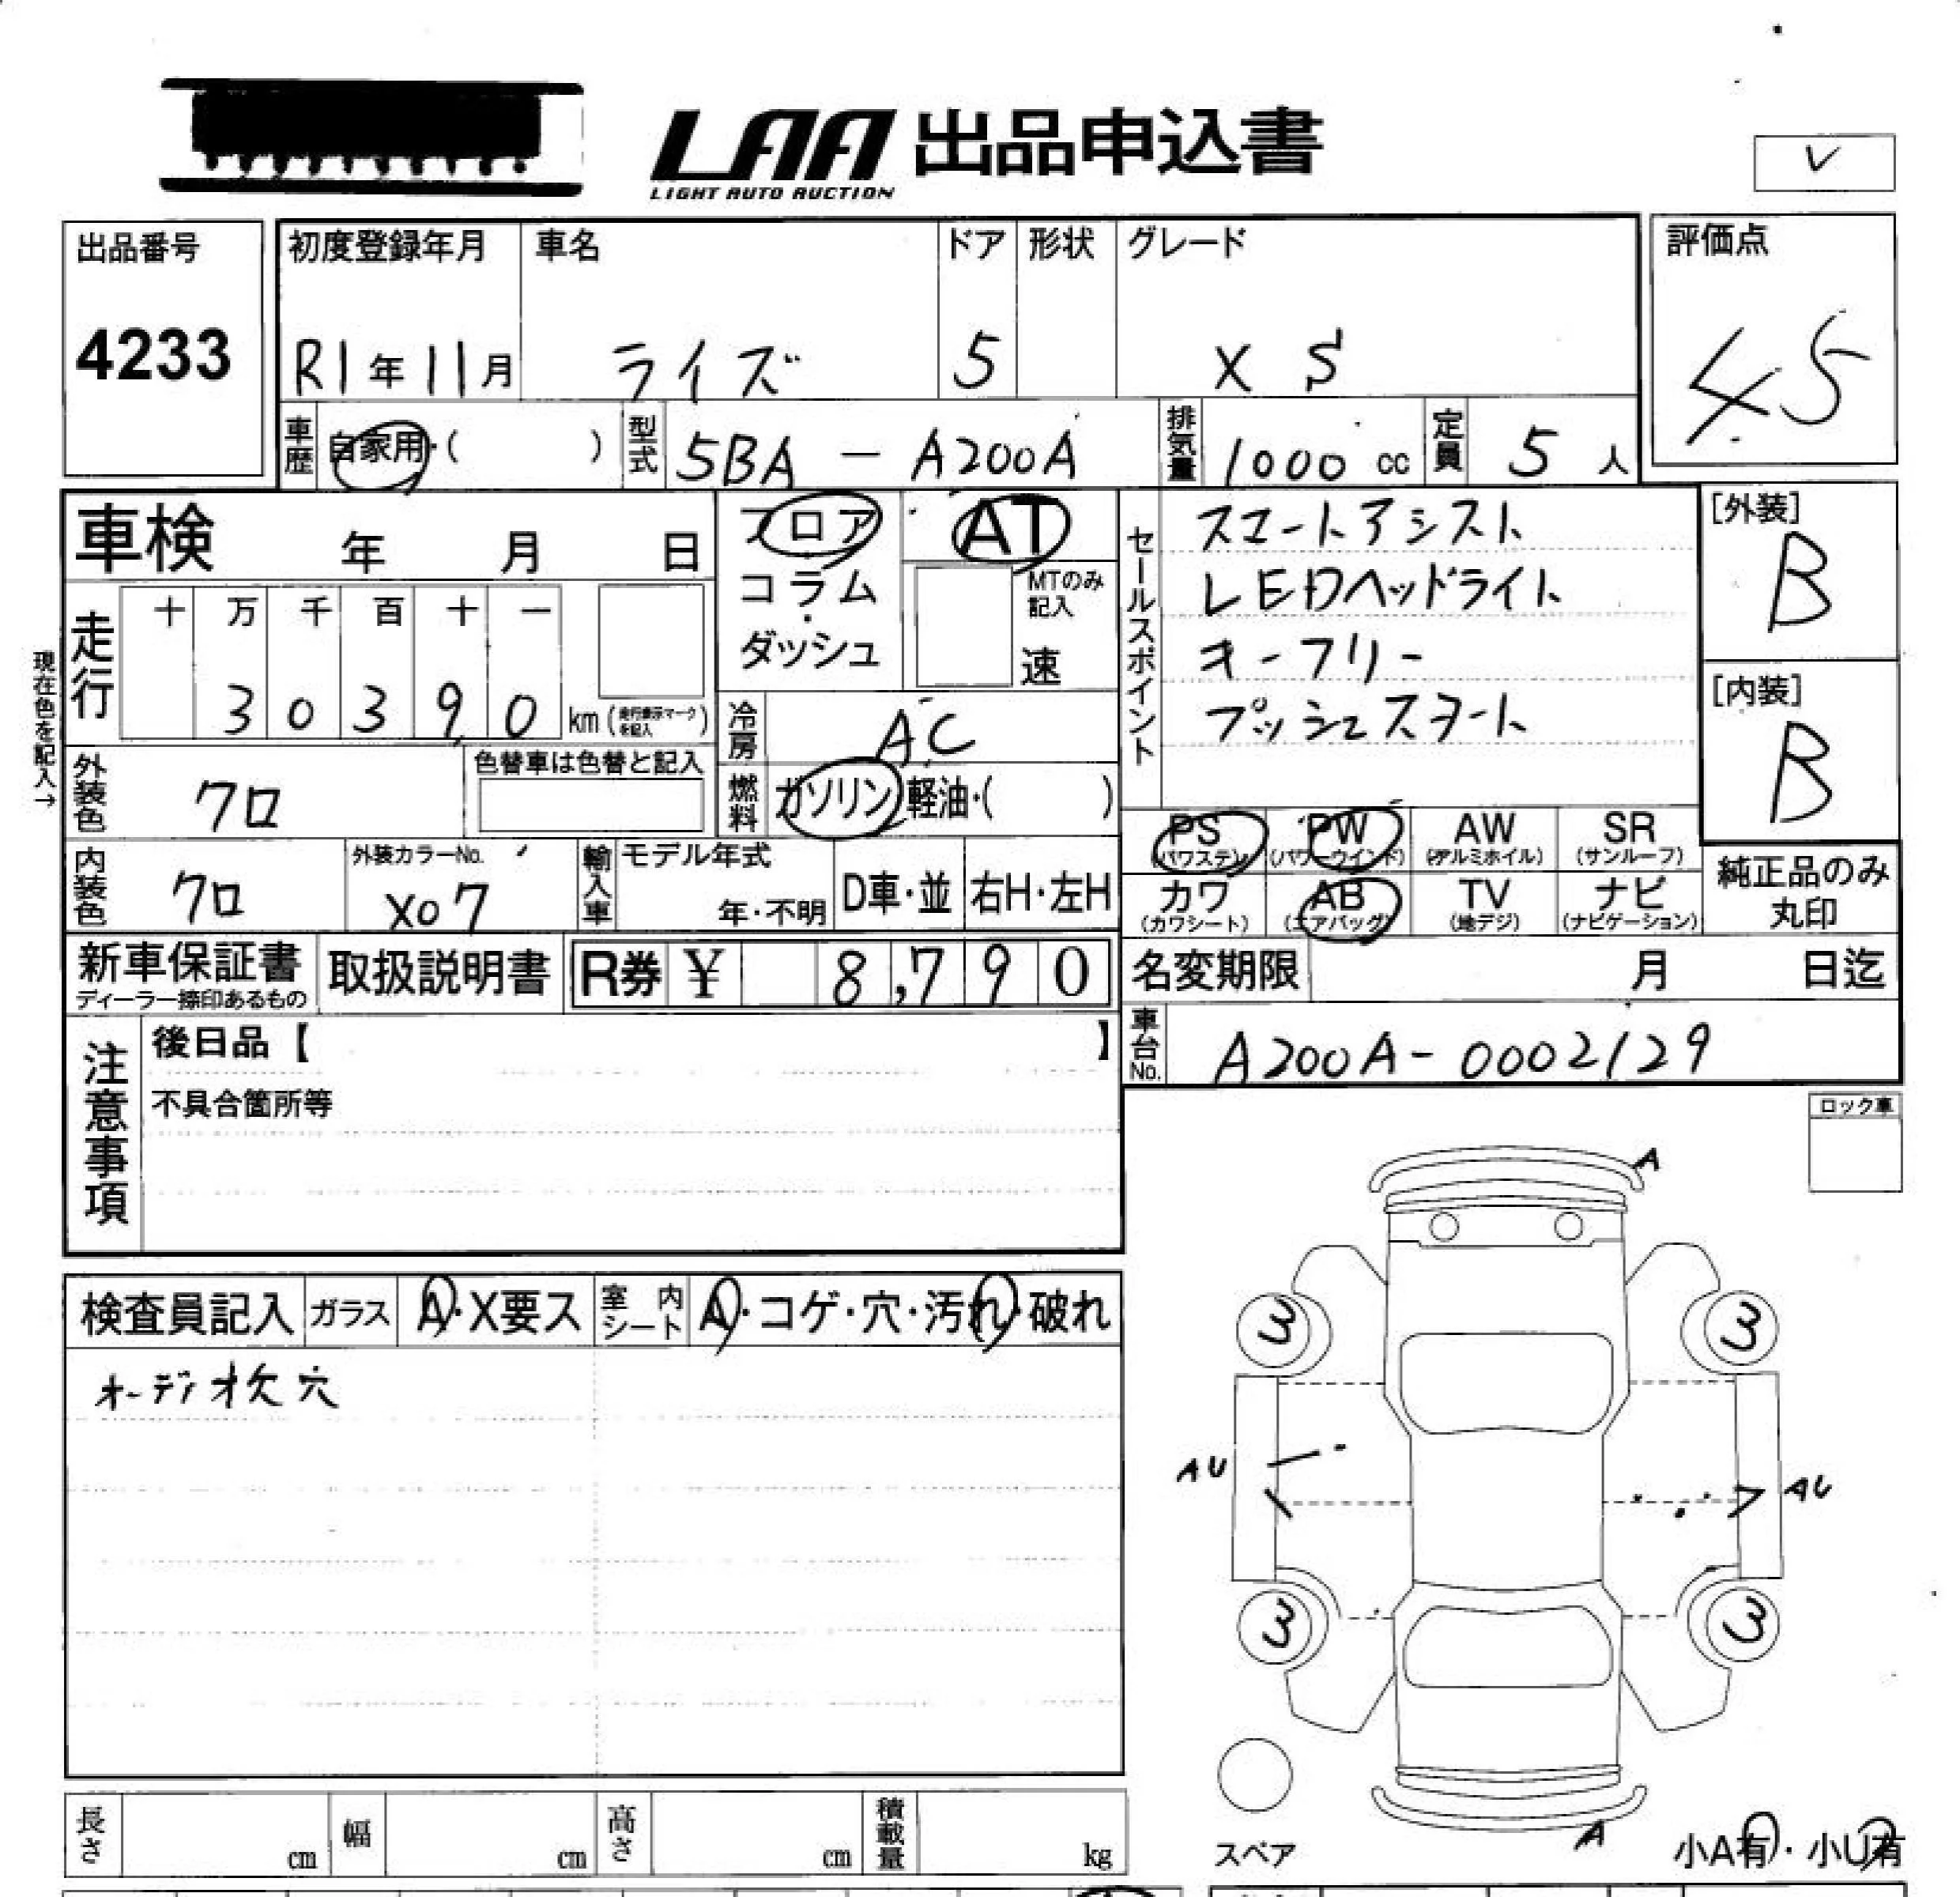 LAA 出品申込書
LIGHT AUTO AUCTION
V
出品番号
4233
初度登録年月
R1年11月
車名
ライズ
ドア
5
形状
グレード
X S
評価点
4.5
車歴
自家用・( )
型式
5BA - A200A
排気量
1000 cc
定員
5 人
車検 年 月 日
フロア
コラム
・
ダッシュ
AT
MTのみ
記入
速
セールスポイント
スマートアシスト
LEDヘッドライト
キーフリー
プッシュスタート
[外装]
B
[内装]
B
現在色を記入→
走行
十 万 千 百 十 一
3 0 3 9 0 km (走行表示マークを記入)
冷房
AC
燃料
ガソリン 軽油・( )
外装色
クロ
色替車は色替と記入
内装色
クロ
外装カラーNo.
X07
輸入車
モデル年式
年・不明
D車・並
右H・左H
PS
(パワステ)
PW
(パワーウインド)
AW
(アルミホイル)
SR
(サンルーフ)
カワ
(カワシート)
AB
(エアバッグ)
TV
(地デジ)
ナビ
(ナビゲーション)
純正品のみ
丸印
新車保証書
ディーラー捺印あるもの
取扱説明書
R券 ¥ 8,790
名変期限 月 日迄
車台No.
A200A-0002129
注意事項
後日品【 】
不具合箇所等
ロック車
検査員記入
ガラス
A・X要ス
室内シート
A・コゲ・穴・汚れ・破れ
オーディオ欠穴
A
3
3
AU
AU
3
3
A
スペア
小A有・小U有
長さ cm
幅 cm
高さ cm
積載量 kg